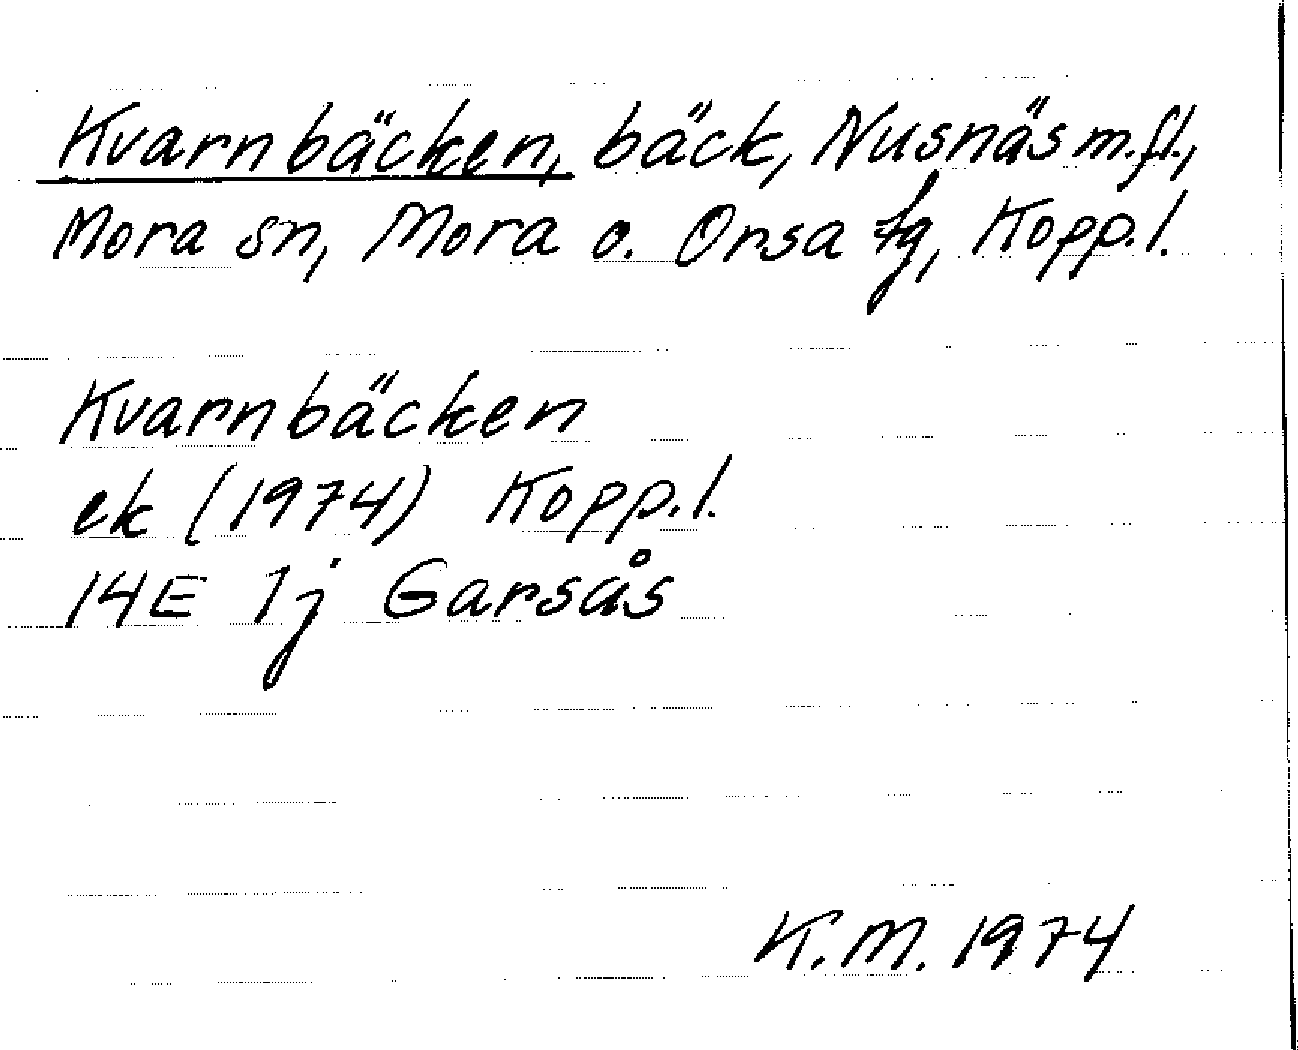 Kvarnbäcken, bäck, Nusnäs m.fl.,
Mora sn, Mora o. Orsa tg, Kopp.l.
Kvarnbäcken
ek (1974) Kopp.l.
14E 1j Garsås
K.M. 1974